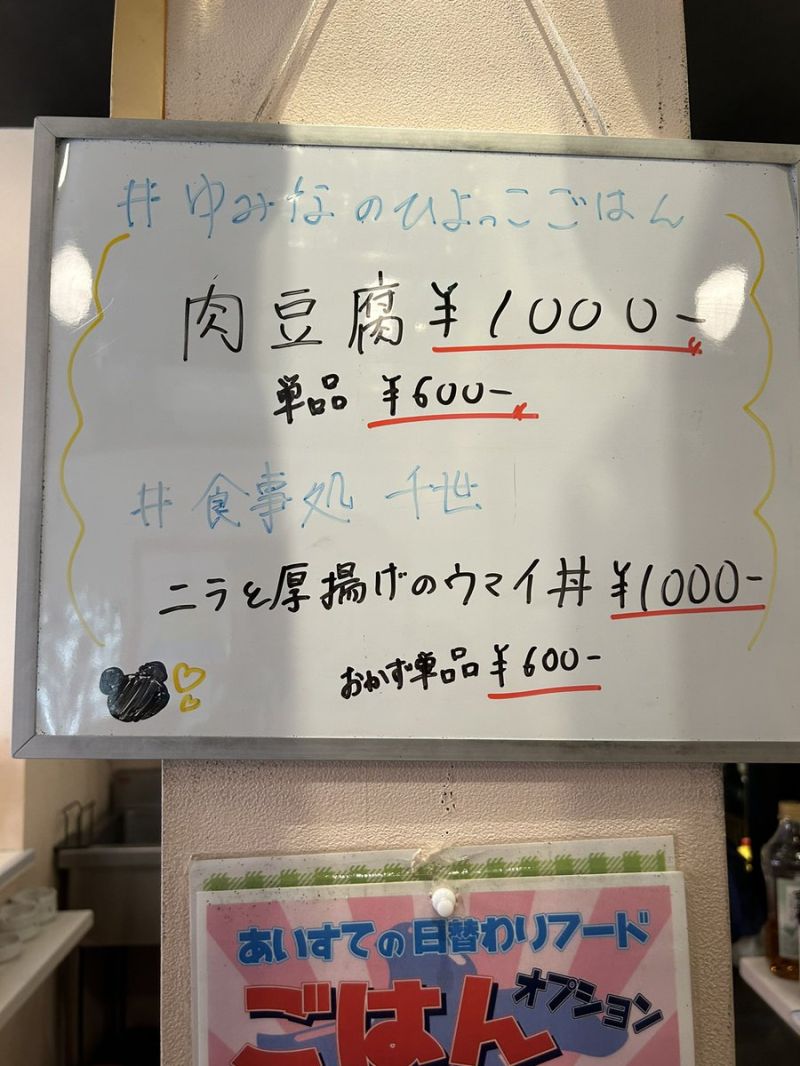 #ゆみなのひよっこごはん
肉豆腐 ¥1000-
単品 ¥600-
#食事処 千世
ニラと厚揚げのウマイ丼 ¥1000-
おかず単品 ¥600-
あいすての日替わりフード
ごはん
オプション